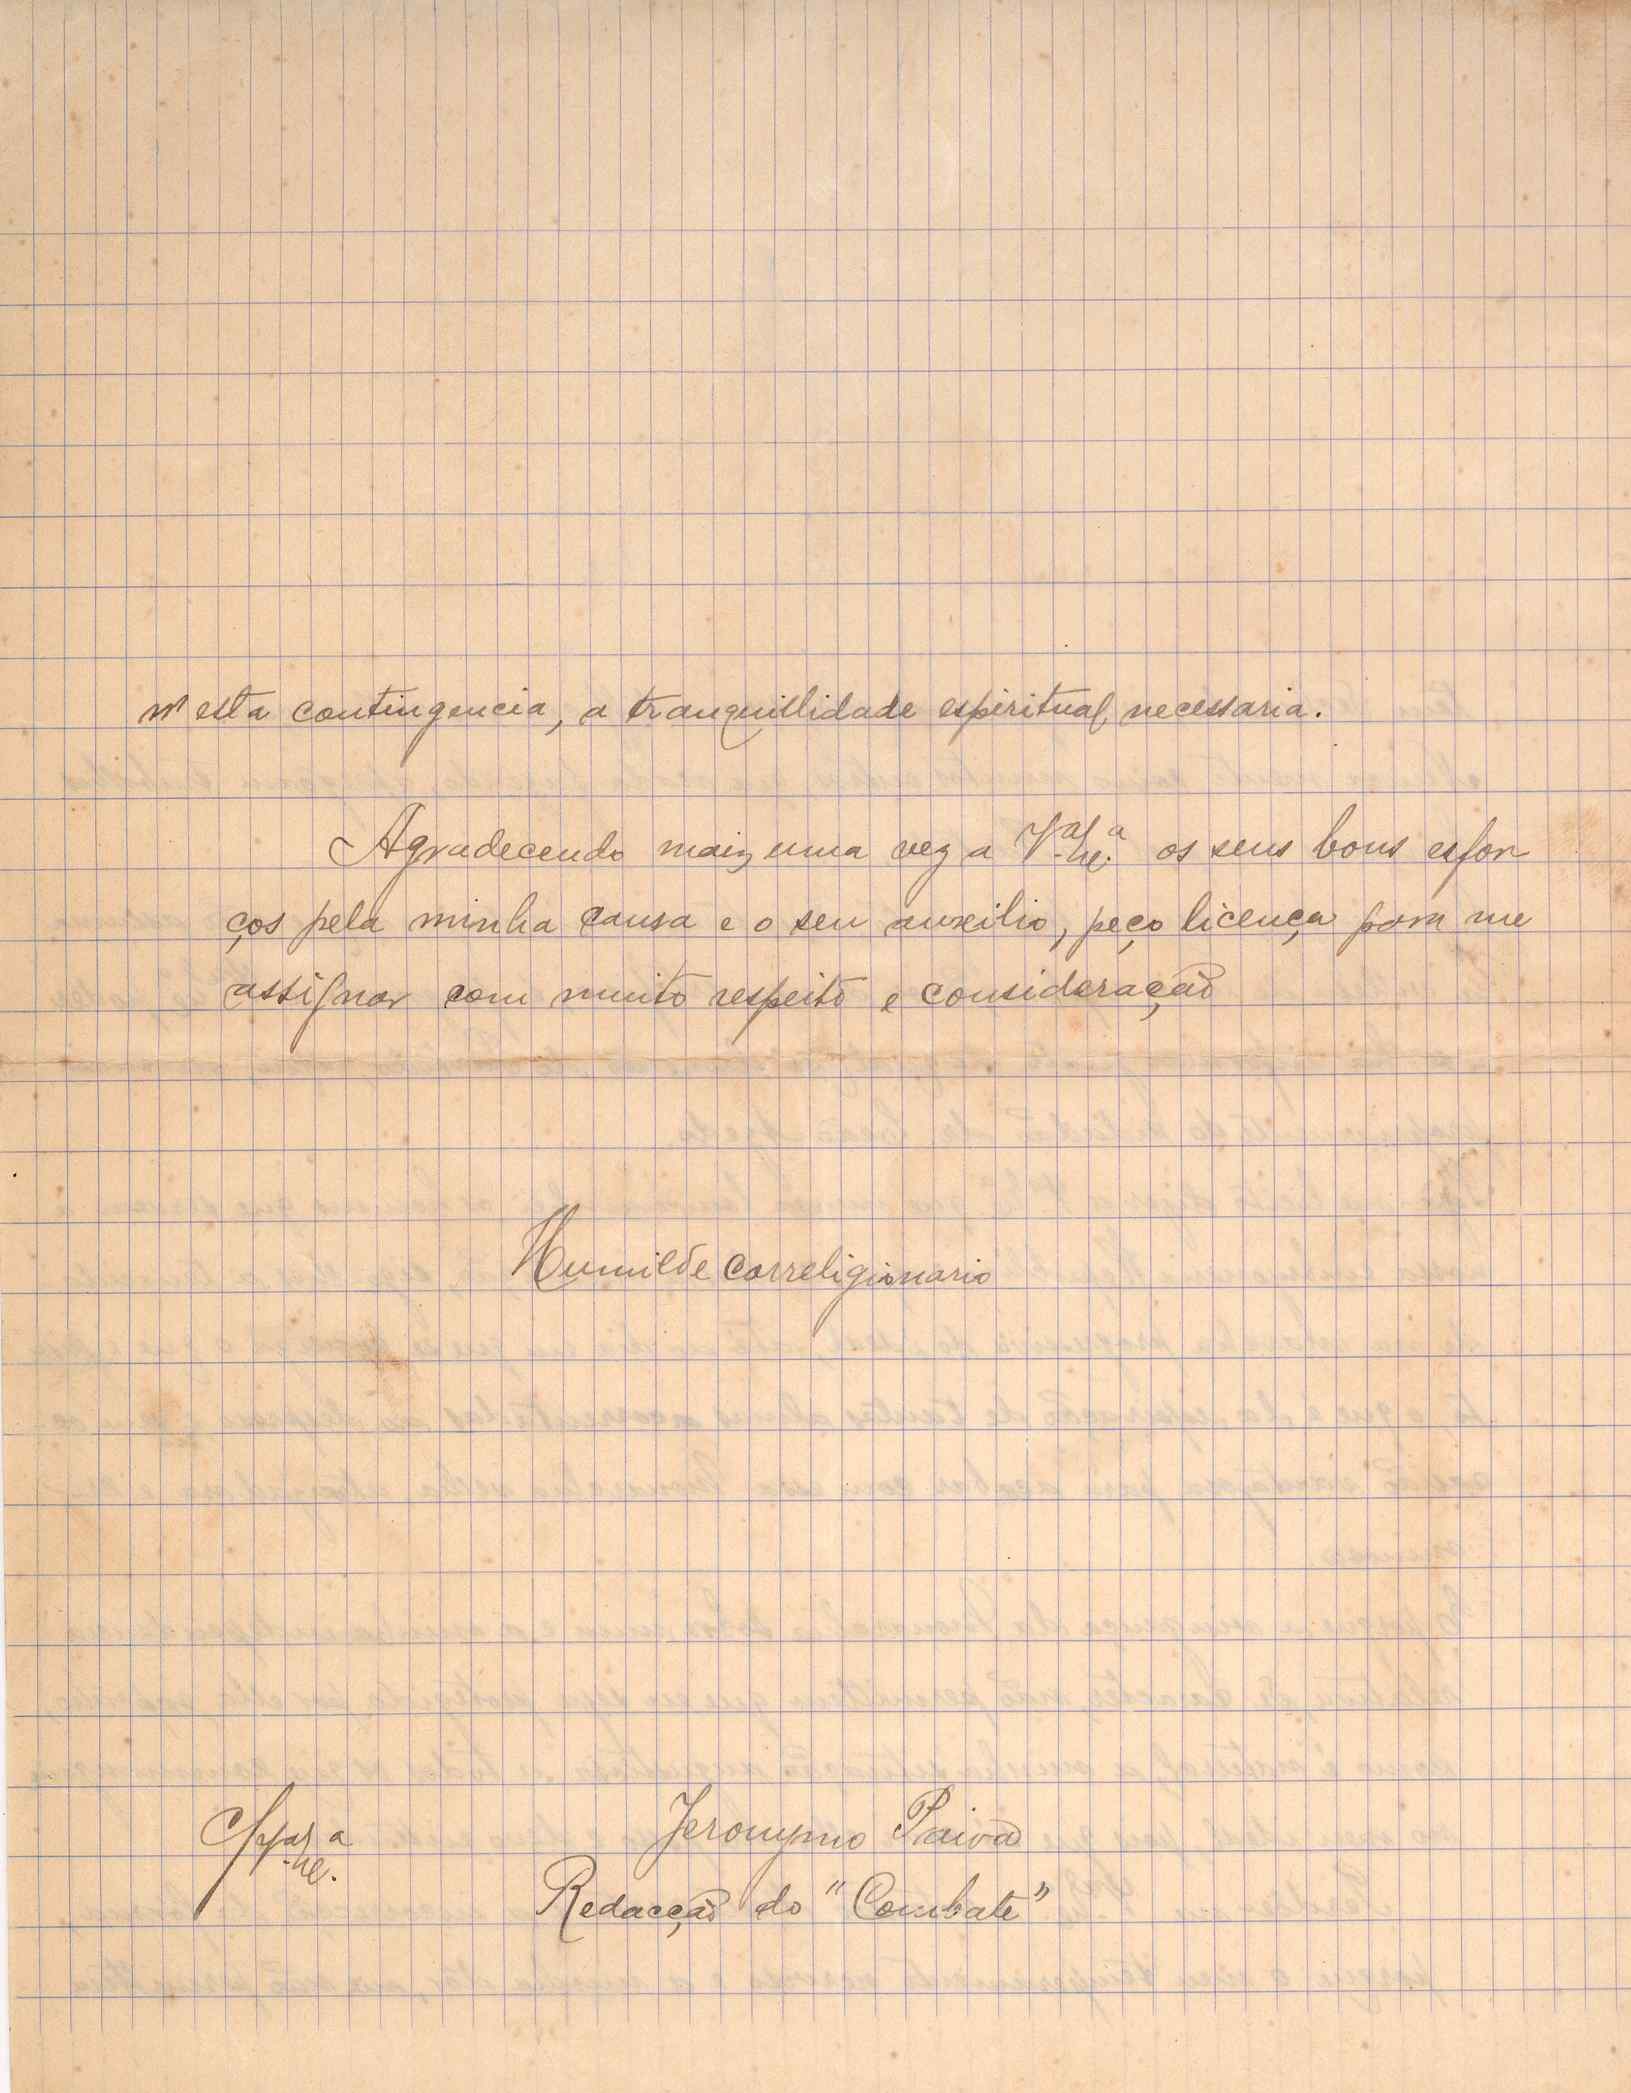 n'esta contingencia, a tranquillidade espiritual, necessaria.
Agradecendo mais uma vez a V. os seus bons esfor
ços pela minha causa e o seu auxilio, peço licença para me
assignar com muito respeito e consideração
Humilde correligionario
Jeronymo Paiva
Redacção do "Combate"